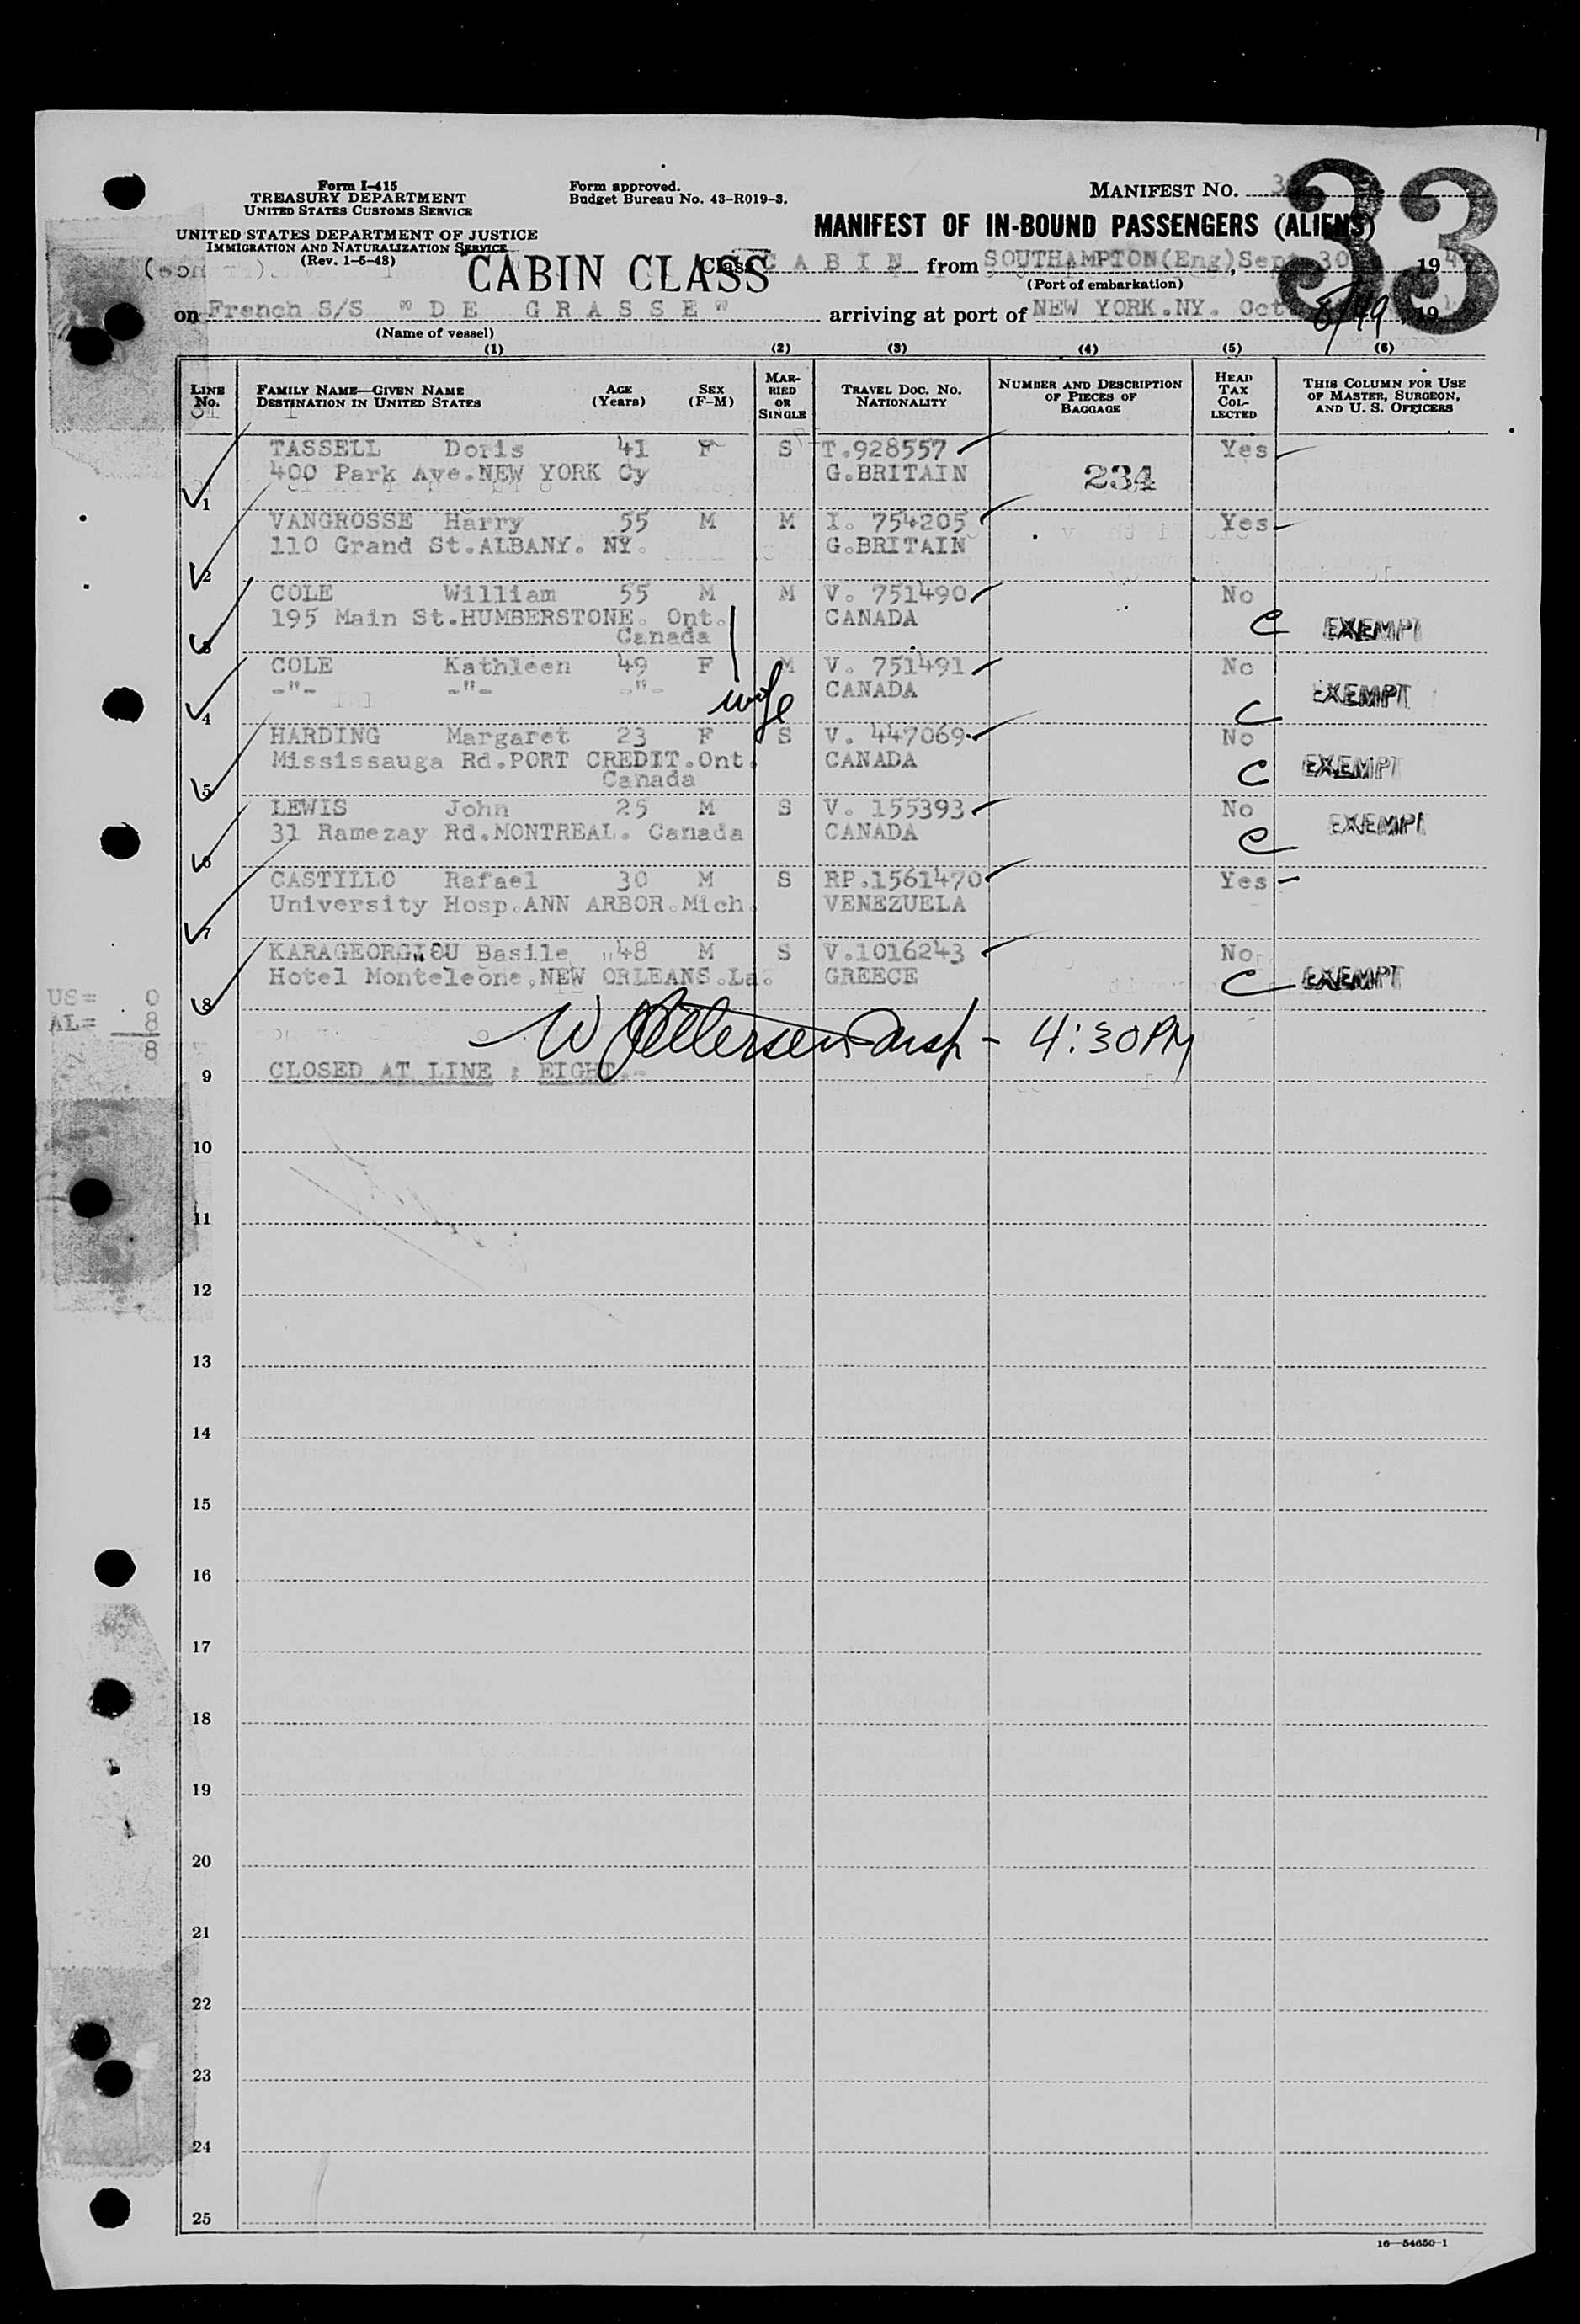 Form I-415
TREASURY DEPARTMENT
UNITED STATES CUSTOMS SERVICE
UNITED STATES DEPARTMENT OF JUSTICE
IMMIGRATION AND NATURALIZATION SERVICE
(Rev. 1-5-48)
Form approved.
Budget Bureau No. 43-R019-3.
MANIFEST NO.
33
MANIFEST OF IN-BOUND PASSENGERS (ALIENS)
CABIN CLASS
Class CABIN from SOUTHAMPTON(Eng), Sept 30 19
(Port of embarkation)
on French S/S "DE GRASSE" arriving at port of NEW YORK.NY. Oct 8/49, 19
(Name of vessel)
(1) (2) (3) (4) (5) (6)
LINE No. FAMILY NAME—GIVEN NAME DESTINATION IN UNITED STATES AGE (Years) SEX (F-M) MARRIED OR SINGLE TRAVEL DOC. NO. NATIONALITY NUMBER AND DESCRIPTION OF PIECES OF BAGGAGE HEAD TAX COLLECTED THIS COLUMN FOR USE OF MASTER, SURGEON, AND U. S. OFFICERS
TASSELL Doris 41 F S T.928557 Yes
400 Park Ave.NEW YORK Cy G.BRITAIN 234
1
VANGROSSE Harry 55 M M I. 754205 Yes
110 Grand St.ALBANY. NY. G.BRITAIN
2
COLE William 55 M M V. 751490 No
195 Main St.HUMBERSTONE. Ont. CANADA C EXEMPT
Canada
3
COLE Kathleen 49 F M V. 751491 No
-"- -"- -"- wife CANADA C EXEMPT
4
HARDING Margaret 23 F S V. 447069 No
Mississauga Rd.PORT CREDIT.Ont. CANADA C EXEMPT
Canada
5
LEWIS John 25 M S V. 155393 No
31 Ramezay Rd.MONTREAL. Canada CANADA C EXEMPT
6
CASTILLO Rafael 30 M S RP.1561470 Yes
University Hosp.ANN ARBOR.Mich. VENEZUELA
7
KARAGEORGIOU Basile 48 M S V.1016243 No
Hotel Monteleone,NEW ORLEANS.La. GREECE C EXEMPT
8
US= 0
AL= 8
8
4:30PM
9 CLOSED AT LINE : EIGHT.-
10
11
12
13
14
15
16
17
18
19
20
21
22
23
24
25
16—54650-1